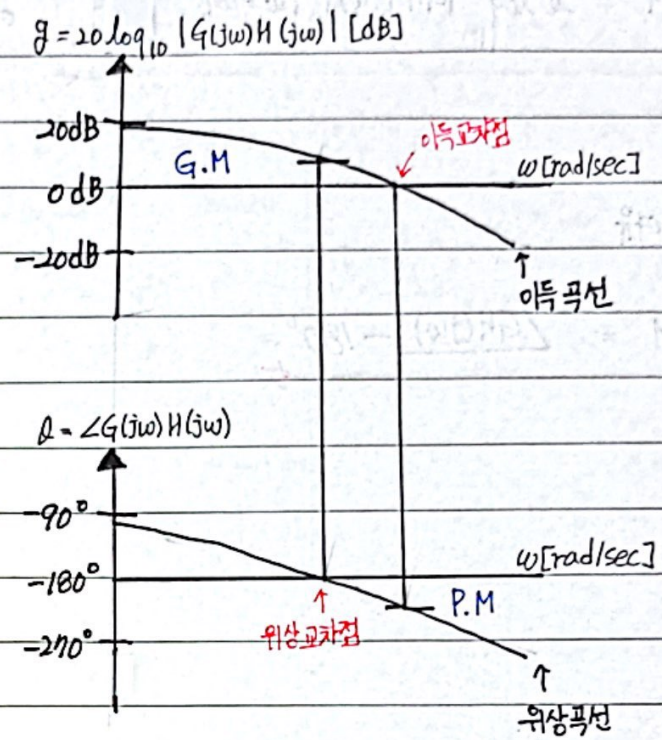 g = 20 log₁₀ |G(jω)H(jω)| [dB]
20dB
이득교차점
G.M
ω[rad/sec]
0dB
-20dB
이득 곡선
θ = ∠G(jω)H(jω)
-90°
ω[rad/sec]
-180°
P.M
위상교차점
-270°
위상곡선